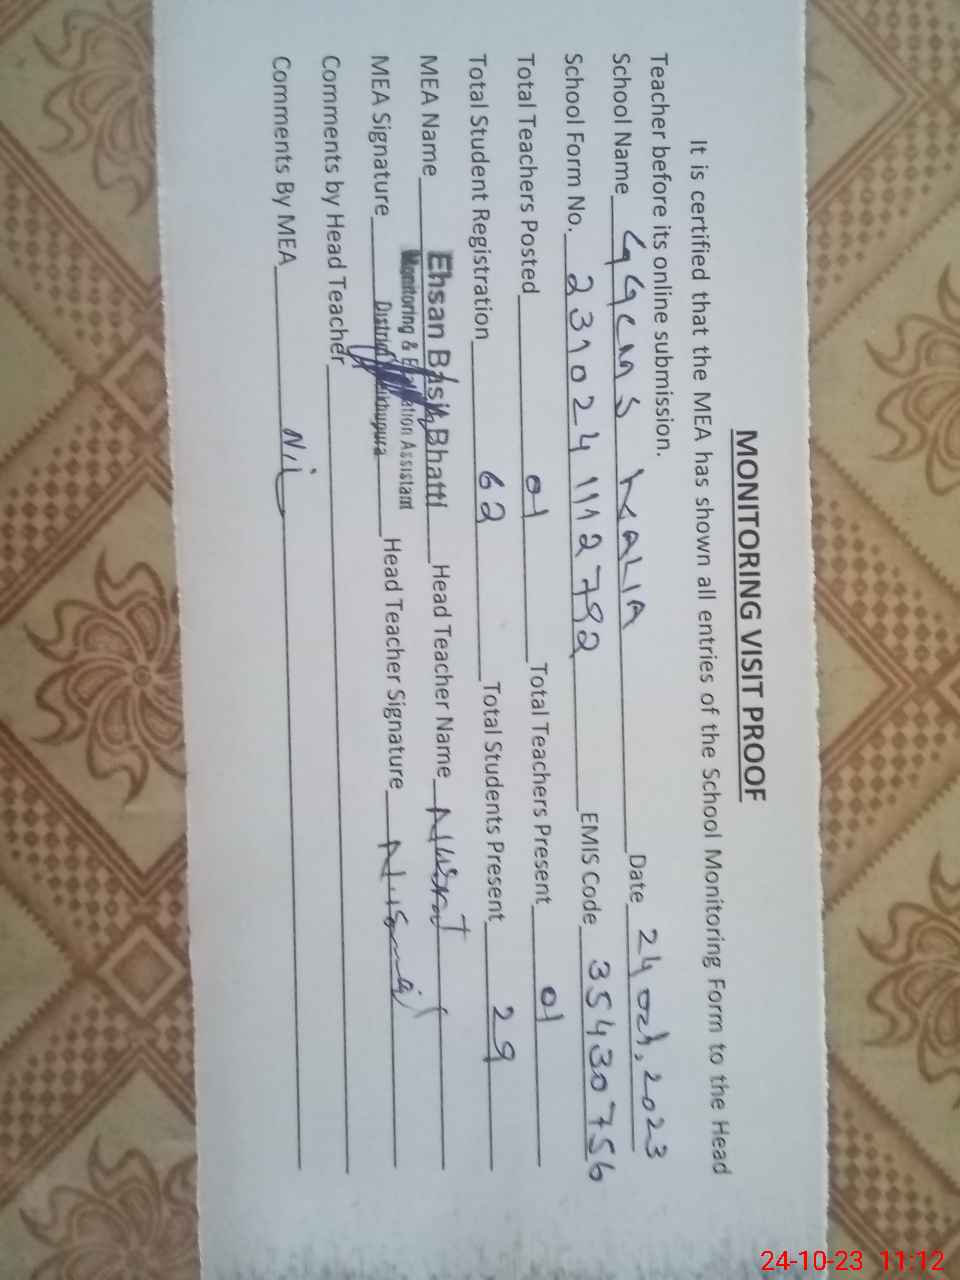 MONITORING VISIT PROOF
It is certified that the MEA has shown all entries of the School Monitoring Form to the Head
Teacher before its online submission.
School Name GGCMS KALIA Date 24 Oct, 2023
School Form No. 2310241112782 EMIS Code 35430756
Total Teachers Posted 01 Total Teachers Present 01
Total Student Registration 62 Total Students Present 29
MEA Name Ehsan Basit Bhatti Head Teacher Name Nusrat
Monitoring & Evaluation Assistant
MEA Signature District Sheikhupura Head Teacher Signature
Comments by Head Teacher
Comments By MEA Nil
24-10-23 11:12